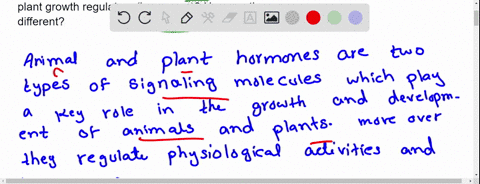 plant growth regulat
different?
Animal and plant hormones are two
types of signaling molecules which play
a key role in the growth and developm-
ent of animals and plants. more over
they regulate physiological activities and